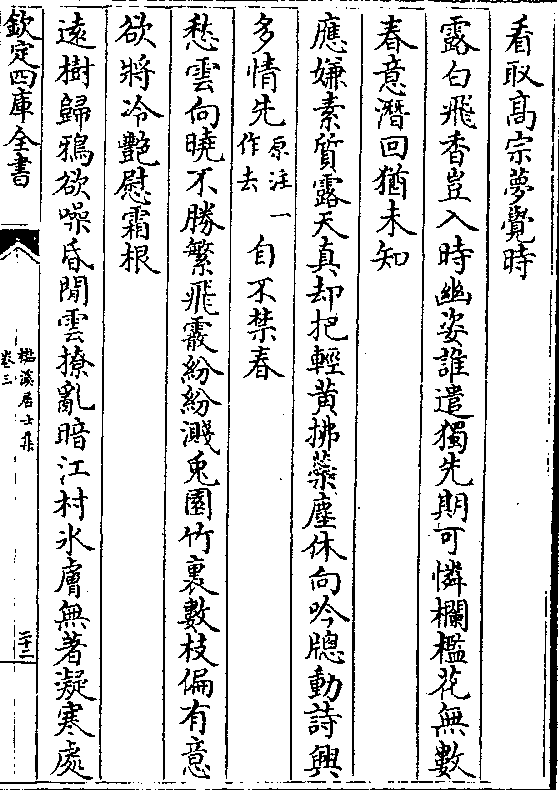 看取髙宗夢覺時
露白飛香豈入時幽姿誰遣獨先期可憐欄檻花無數
春意潛回猶未知
應嫌素質露天真却把輕黄拂蘂塵休向吟牕動詩興
多情先原注一作去自不禁春
愁雲向曉不勝繁飛霰紛紛濺兎園竹裏數枝偏有意
欲將冷艷慰霜根
遠樹歸鴉欲噪昏閒雲撩亂暗江村氷膚無著凝寒處
欽定四庫全書
檆溪居士集
卷三
二十二